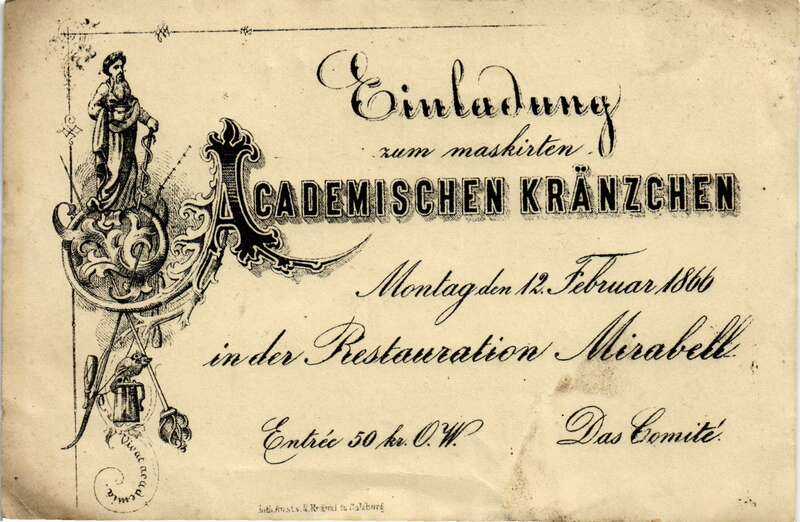 Einladung
zum maskirten
ACADEMISCHEN KRÄNZCHEN
Montag den 12. Februar 1866
in der Restauration Mirabell.
Entrée 50 kr. O. W.
Das Comité.
Vivat academia
Lith. Anst. v. in Salzburg